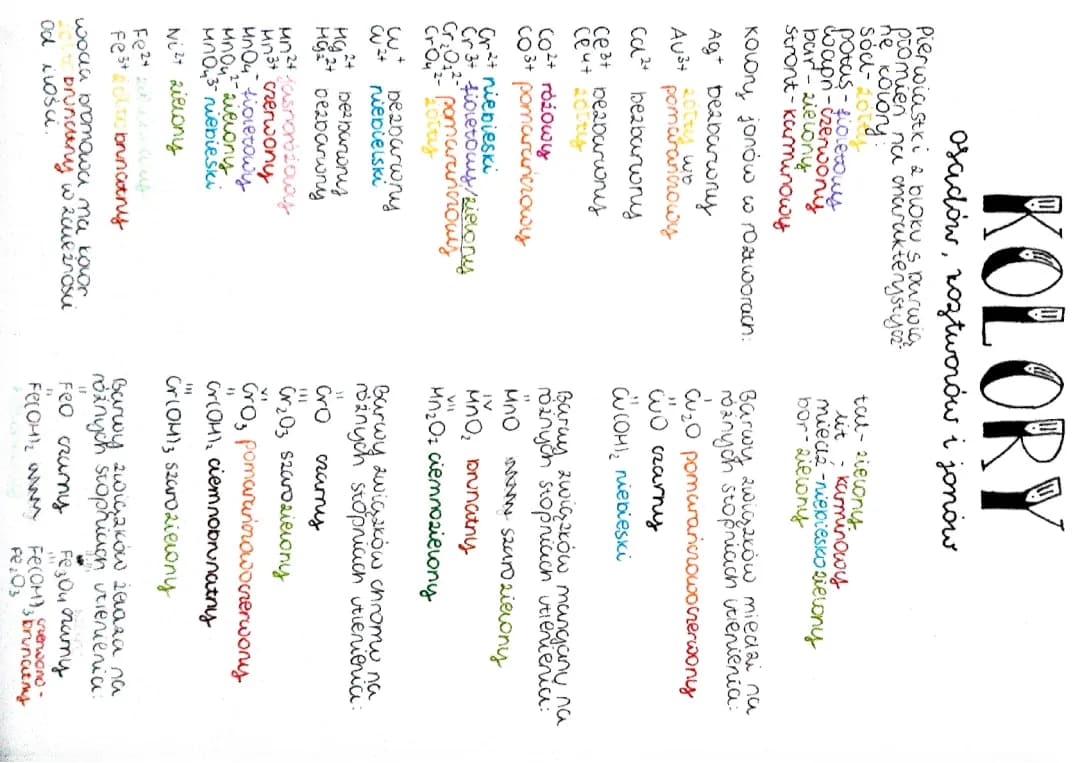 KOLORY
osadów, roztworów i jonów
Pierwiastki z bloku s barwią
płomień na charakterystycz-
ne kolory:
sód - żółty
potas - fioletowy
wapń - czerwony
bar - zielony
stront - karminowy
tal - zielony
lit - karminowy
miedź - niebieskozielony
bor - zielony
Kolory jonów w roztworach:
Ag⁺ bezbarwny
Au³⁺ żółty lub
pomarańczowy
Cd²⁺ bezbarwny
Ce³⁺ bezbarwny
Ce⁴⁺ żółty
Co²⁺ różowy
Co³⁺ pomarańczowy
Cr²⁺ niebieski
Cr³⁺ fioletowy/zielony
Cr₂O₇²⁻ pomarańczowy
CrO₄²⁻ żółty
Cu⁺ bezbarwny
Cu²⁺ niebieski
Hg²⁺ bezbarwny
Hg₂²⁺ bezbarwny
Mn²⁺ jasnoróżowy
Mn³⁺ czerwony
MnO₄⁻ fioletowy
MnO₄²⁻ zielony
MnO₄³⁻ niebieski
Ni²⁺ zielony
Fe²⁺
Fe³⁺ żółtobrunatny
woda bromowa ma kolor
żółto brunatny w zależności
od ilości.
Barwy związków miedzi na
różnych stopniach utlenienia:
I
Cu₂O pomarańczowoczerwony
II
CuO czarny
II
Cu(OH)₂ niebieski
Barwy związków manganu na
różnych stopniach utlenienia:
II
MnO szarozielony
IV
MnO₂ brunatny
VII
Mn₂O₇ ciemnozielony
Barwy związków chromu na
różnych stopniach utlenienia:
II
CrO czarny
III
Cr₂O₃ szarozielony
VI
CrO₃ pomarańczowoczerwony
II
Cr(OH)₂ ciemnobrunatny
III
Cr(OH)₃ szarozielony
Barwy związków żelaza na
różnych stopniach utlenienia:
II
FeO czarny
Fe₃O₄ czarny
II
Fe(OH)₂
III
Fe(OH)₃ czerwono-
brunatny
Fe₂O₃